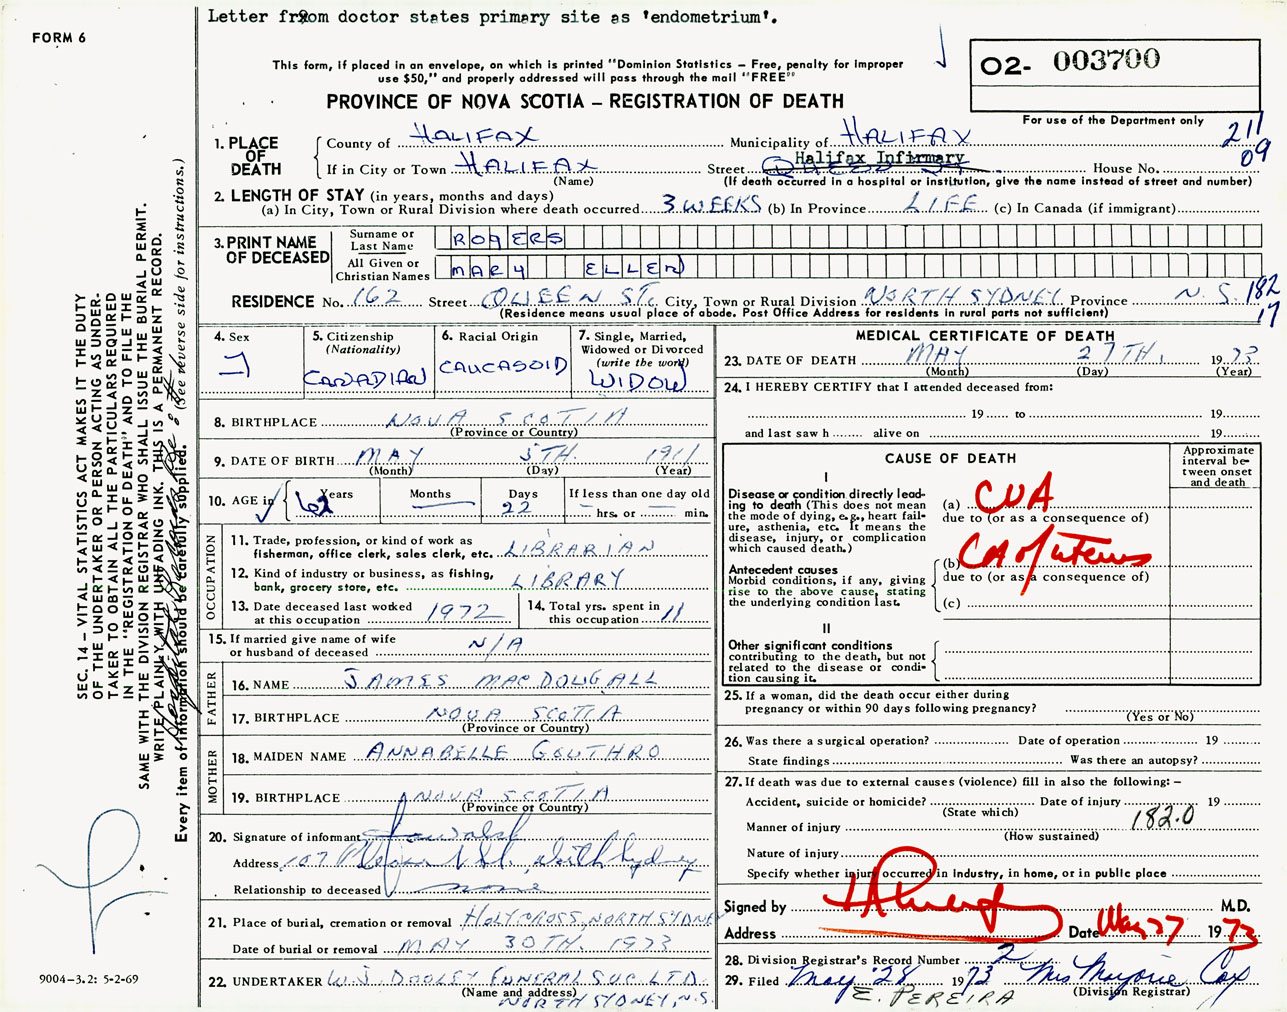 Letter from doctor states primary site as 'endometrium'.
FORM 6
This form, if placed in an envelope, on which is printed "Dominion Statistics - Free, penalty for improper
use $50," and properly addressed will pass through the mail "FREE"
PROVINCE OF NOVA SCOTIA – REGISTRATION OF DEATH
02- 003700
For use of the Department only
211
09
1. PLACE OF DEATH
County of HALIFAX Municipality of HALIFAX
If in City or Town HALIFAX Street Halifax Infirmary House No.
(Name) (If death occurred in a hospital or institution, give the name instead of street and number)
2. LENGTH OF STAY (in years, months and days)
(a) In City, Town or Rural Division where death occurred 3 WEEKS (b) In Province LIFE (c) In Canada (if immigrant)
3. PRINT NAME OF DECEASED
Surname or Last Name ROGERS
All Given or Christian Names MARY ELLEN
RESIDENCE No. 162 Street QUEEN ST. City, Town or Rural Division NORTH SYDNEY Province N.S. 182
17
(Residence means usual place of abode. Post Office Address for residents in rural parts not sufficient)
4. Sex
F
5. Citizenship
(Nationality)
CANADIAN
6. Racial Origin
CAUCASOID
7. Single, Married,
Widowed or Divorced
(write the word)
WIDOW
8. BIRTHPLACE NOVA SCOTIA
(Province or Country)
9. DATE OF BIRTH MAY 5TH. 1911
(Month) (Day) (Year)
10. AGE in Years Months Days If less than one day old
62 — 22 — hrs. or — min.
OCCUPATION
11. Trade, profession, or kind of work as
fisherman, office clerk, sales clerk, etc. LIBRARIAN
12. Kind of industry or business, as fishing,
bank, grocery store, etc. LIBRARY
13. Date deceased last worked
at this occupation 1972
14. Total yrs. spent in
this occupation 11
15. If married give name of wife
or husband of deceased N/A
FATHER
16. NAME JAMES MACDOUGALL
17. BIRTHPLACE NOVA SCOTIA
(Province or Country)
MOTHER
18. MAIDEN NAME ANNABELLE GOUTHRO
19. BIRTHPLACE NOVA SCOTIA
(Province or Country)
20. Signature of informant Walsh
Address 107 North Sydney
Relationship to deceased none
21. Place of burial, cremation or removal HOLY CROSS, NORTH SYDNEY
Date of burial or removal MAY 30TH. 1973
22. UNDERTAKER W.J. DOOLEY FUNERAL SUC. LTD.
(Name and address)
NORTH SYDNEY, N.S.
MEDICAL CERTIFICATE OF DEATH
23. DATE OF DEATH MAY 27TH. 1973
(Month) (Day) (Year)
24. I HEREBY CERTIFY that I attended deceased from:
19 to 19
and last saw h alive on 19
CAUSE OF DEATH
Approximate
interval be-
tween onset
and death
I
Disease or condition directly lead-
ing to death (This does not
mean the mode of dying, e.g., heart fail-
ure, asthenia, etc. It means the
disease, injury, or complication
which caused death.)
(a) CVA
due to (or as a consequence of)
(b) CA of uterus
due to (or as a consequence of)
(c)
Antecedent causes
Morbid conditions, if any, giving
rise to the above cause, stating
the underlying condition last.
II
Other significant conditions
contributing to the death, but not
related to the disease or condi-
tion causing it.
25. If a woman, did the death occur either during
pregnancy or within 90 days following pregnancy?
(Yes or No)
26. Was there a surgical operation? Date of operation 19
State findings Was there an autopsy?
27. If death was due to external causes (violence) fill in also the following: –
Accident, suicide or homicide? Date of injury 19
(State which)
Manner of injury 182.0
(How sustained)
Nature of injury
Specify whether injury occurred in industry, in home, or in public place
Signed by M.D.
Address Date May 27 1973
28. Division Registrar's Record Number 2
29. Filed May 28 1973 Mrs Marjorie Cox
(Division Registrar)
E. PEREIRA
SEC. 14 – VITAL STATISTICS ACT MAKES IT THE DUTY
OF THE UNDERTAKER OR PERSON ACTING AS UNDER-
TAKER TO OBTAIN ALL THE PARTICULARS REQUIRED
IN THE "REGISTRATION OF DEATH" AND TO FILE THE
SAME WITH THE DIVISION REGISTRAR WHO SHALL ISSUE THE BURIAL PERMIT.
WRITE PLAINLY WITH UNFADING INK. THIS IS A PERMANENT RECORD.
Every item of information should be carefully supplied. (See reverse side for instructions.)
9004-3.2: 5-2-69